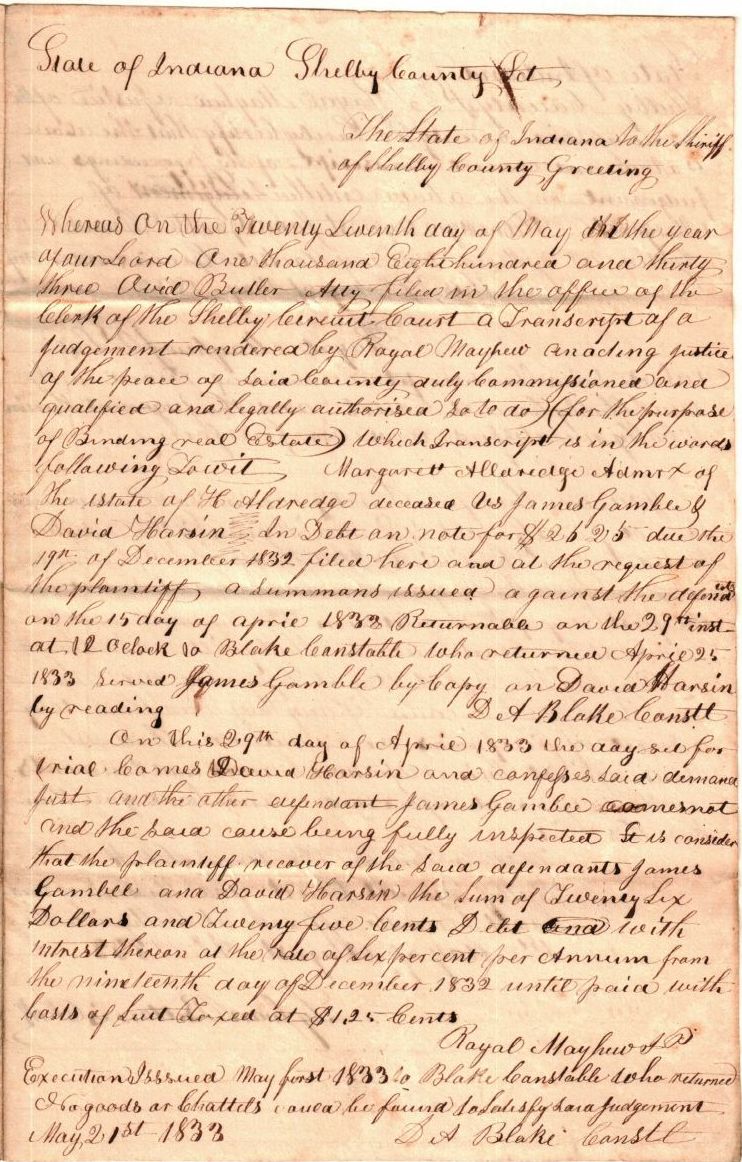 State of Indiana Shelby County Sct
The State of Indiana to the Shiriff
of Shelby County Greeting
Whereas On the Twenty Seventh day of May in the year
of our Lord One thousand Eight hundred and thirty
three Ovid Butler Atty filed in the office of the
Clerk of the Shelby Circuit Court a Transcript of a
judgement rendered by Royal Mayhew an acting justice
of the peace of said County duly Commissioned and
qualified and legally authorised so to do) (for the purpose
of Binding real Estate) which Transcript is in the words
following Towit Margarett Alldredge Admrx of
the estate of H Aldredge deceased Vs James Gamble &
David Harsin In Debt on note for $26 25 due the
19th of December 1832 filed here and at the request of
the plaintiff, a summons issued against the defendants
on the 15 day of aprile 1833 Returnable on the 29th inst
at 12 Oclock to Blake Constable who returned April 25
1833 Served James Gamble by Copy on David Harsin
by reading D A Blake Constt
On this 29th day of April 1833 the day set for
trial Comes David Harsin and confesses said demand
Just and the other defendant James Gamble comes not
and the said cause being fully inspected It is consider
that the plaintiff recover of the said defendants James
Gamble and David Harsin the Sum of Twenty Six
Dollars and Twenty five Cents Debt and with
intrest thereon at the rate of Six percent per Annum from
the nineteenth day of December 1832 until paid with
Costs of Suit Taxed at $1.25 Cents
Royal Mayhew J.P.
Execution Isssued May first 1833 to Blake Constable who returned
No goods or Chattels could be found to Satisfy said Judgement
May 21st 1833 D A Blake Constt